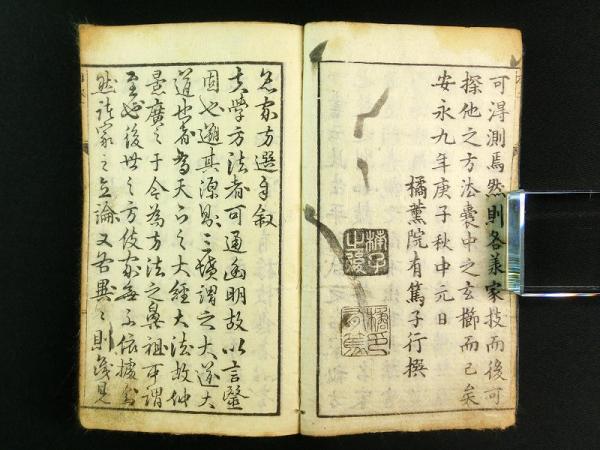 可淂測焉然則各羙家技而後可
探他之方法嚢中之玄櫛而已矣
安永九年庚子秋中元日
橘薫院有篤子行撰
家方選
夫學方法者可通幽明故以言醫
固也遡其源則三墳謂之大道大
道也者為天下之大經大法故仲
景廣之于今為方法之鼻祖可謂
至也後世之方伎家無不依據焉
然諸家之立論又各異々則淺見